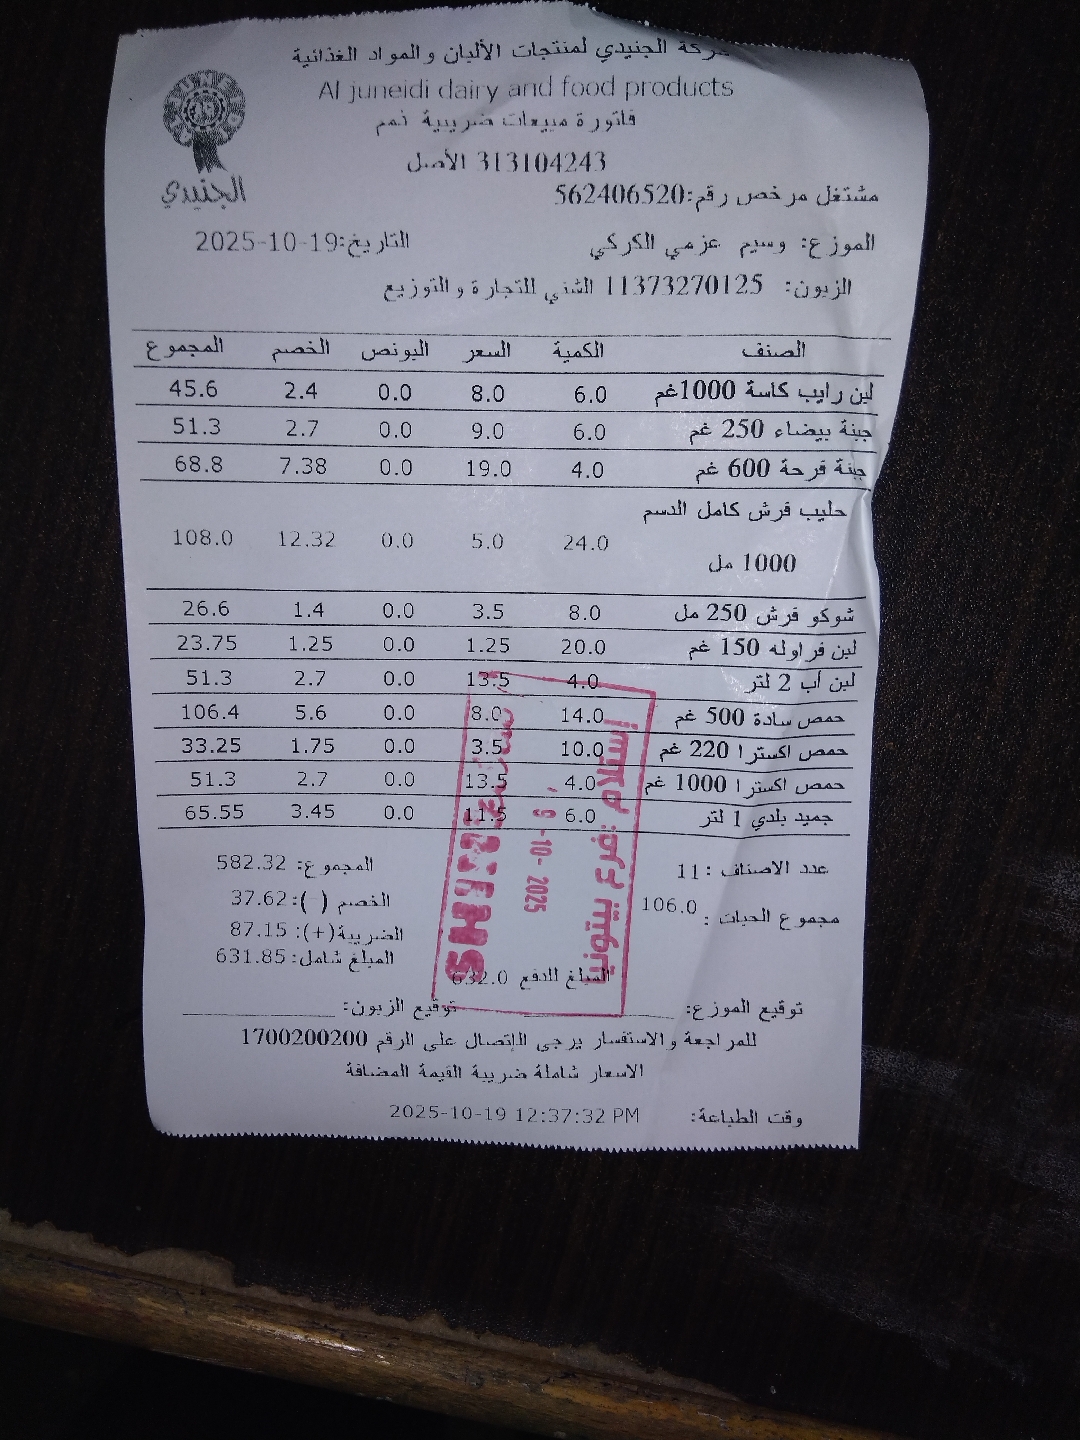 شركة الجنيدي لمنتجات الألبان والمواد الغذائية
Al juneidi dairy and food products
فاتورة مبيعات ضريبية ذمم
313104243 الأصل
الجنيدي
مشتغل مرخص رقم:562406520
الموزع: وسيم عزمي الكركي التاريخ:2025-10-19
الزبون: 11373270125 الشني للتجارة والتوزيع
الصنف الكمية السعر البونص الخصم المجموع
لبن رايب كاسة 1000غم 6.0 8.0 0.0 2.4 45.6
جبنة بيضاء 250 غم 6.0 9.0 0.0 2.7 51.3
جبنة فرحة 600 غم 4.0 19.0 0.0 7.38 68.8
حليب فرش كامل الدسم
1000 مل 24.0 5.0 0.0 12.32 108.0
شوكو فرش 250 مل 8.0 3.5 0.0 1.4 26.6
لبن فراوله 150 غم 20.0 1.25 0.0 1.25 23.75
لبن أب 2 لتر 4.0 13.5 0.0 2.7 51.3
حمص سادة 500 غم 14.0 8.0 0.0 5.6 106.4
حمص اكسترا 220 غم 10.0 3.5 0.0 1.75 33.25
حمص اكسترا 1000 غم 4.0 13.5 0.0 2.7 51.3
جميد بلدي 1 لتر 6.0 11.5 0.0 3.45 65.55
عدد الاصناف : 11 المجموع: 582.32
مجموع الحبات : 106.0 الخصم (-): 37.62
الضريبة(+): 87.15
المبلغ شامل: 631.85
المبلغ للدفع 632.0
توقيع الموزع: توقيع الزبون:
للمراجعة والاستفسار يرجى الإتصال على الرقم 1700200200
الاسعار شاملة ضريبة القيمة المضافة
وقت الطباعة: 2025-10-19 12:37:32 PM
إستلام :فرع بيتونيا
9 -10- 2025